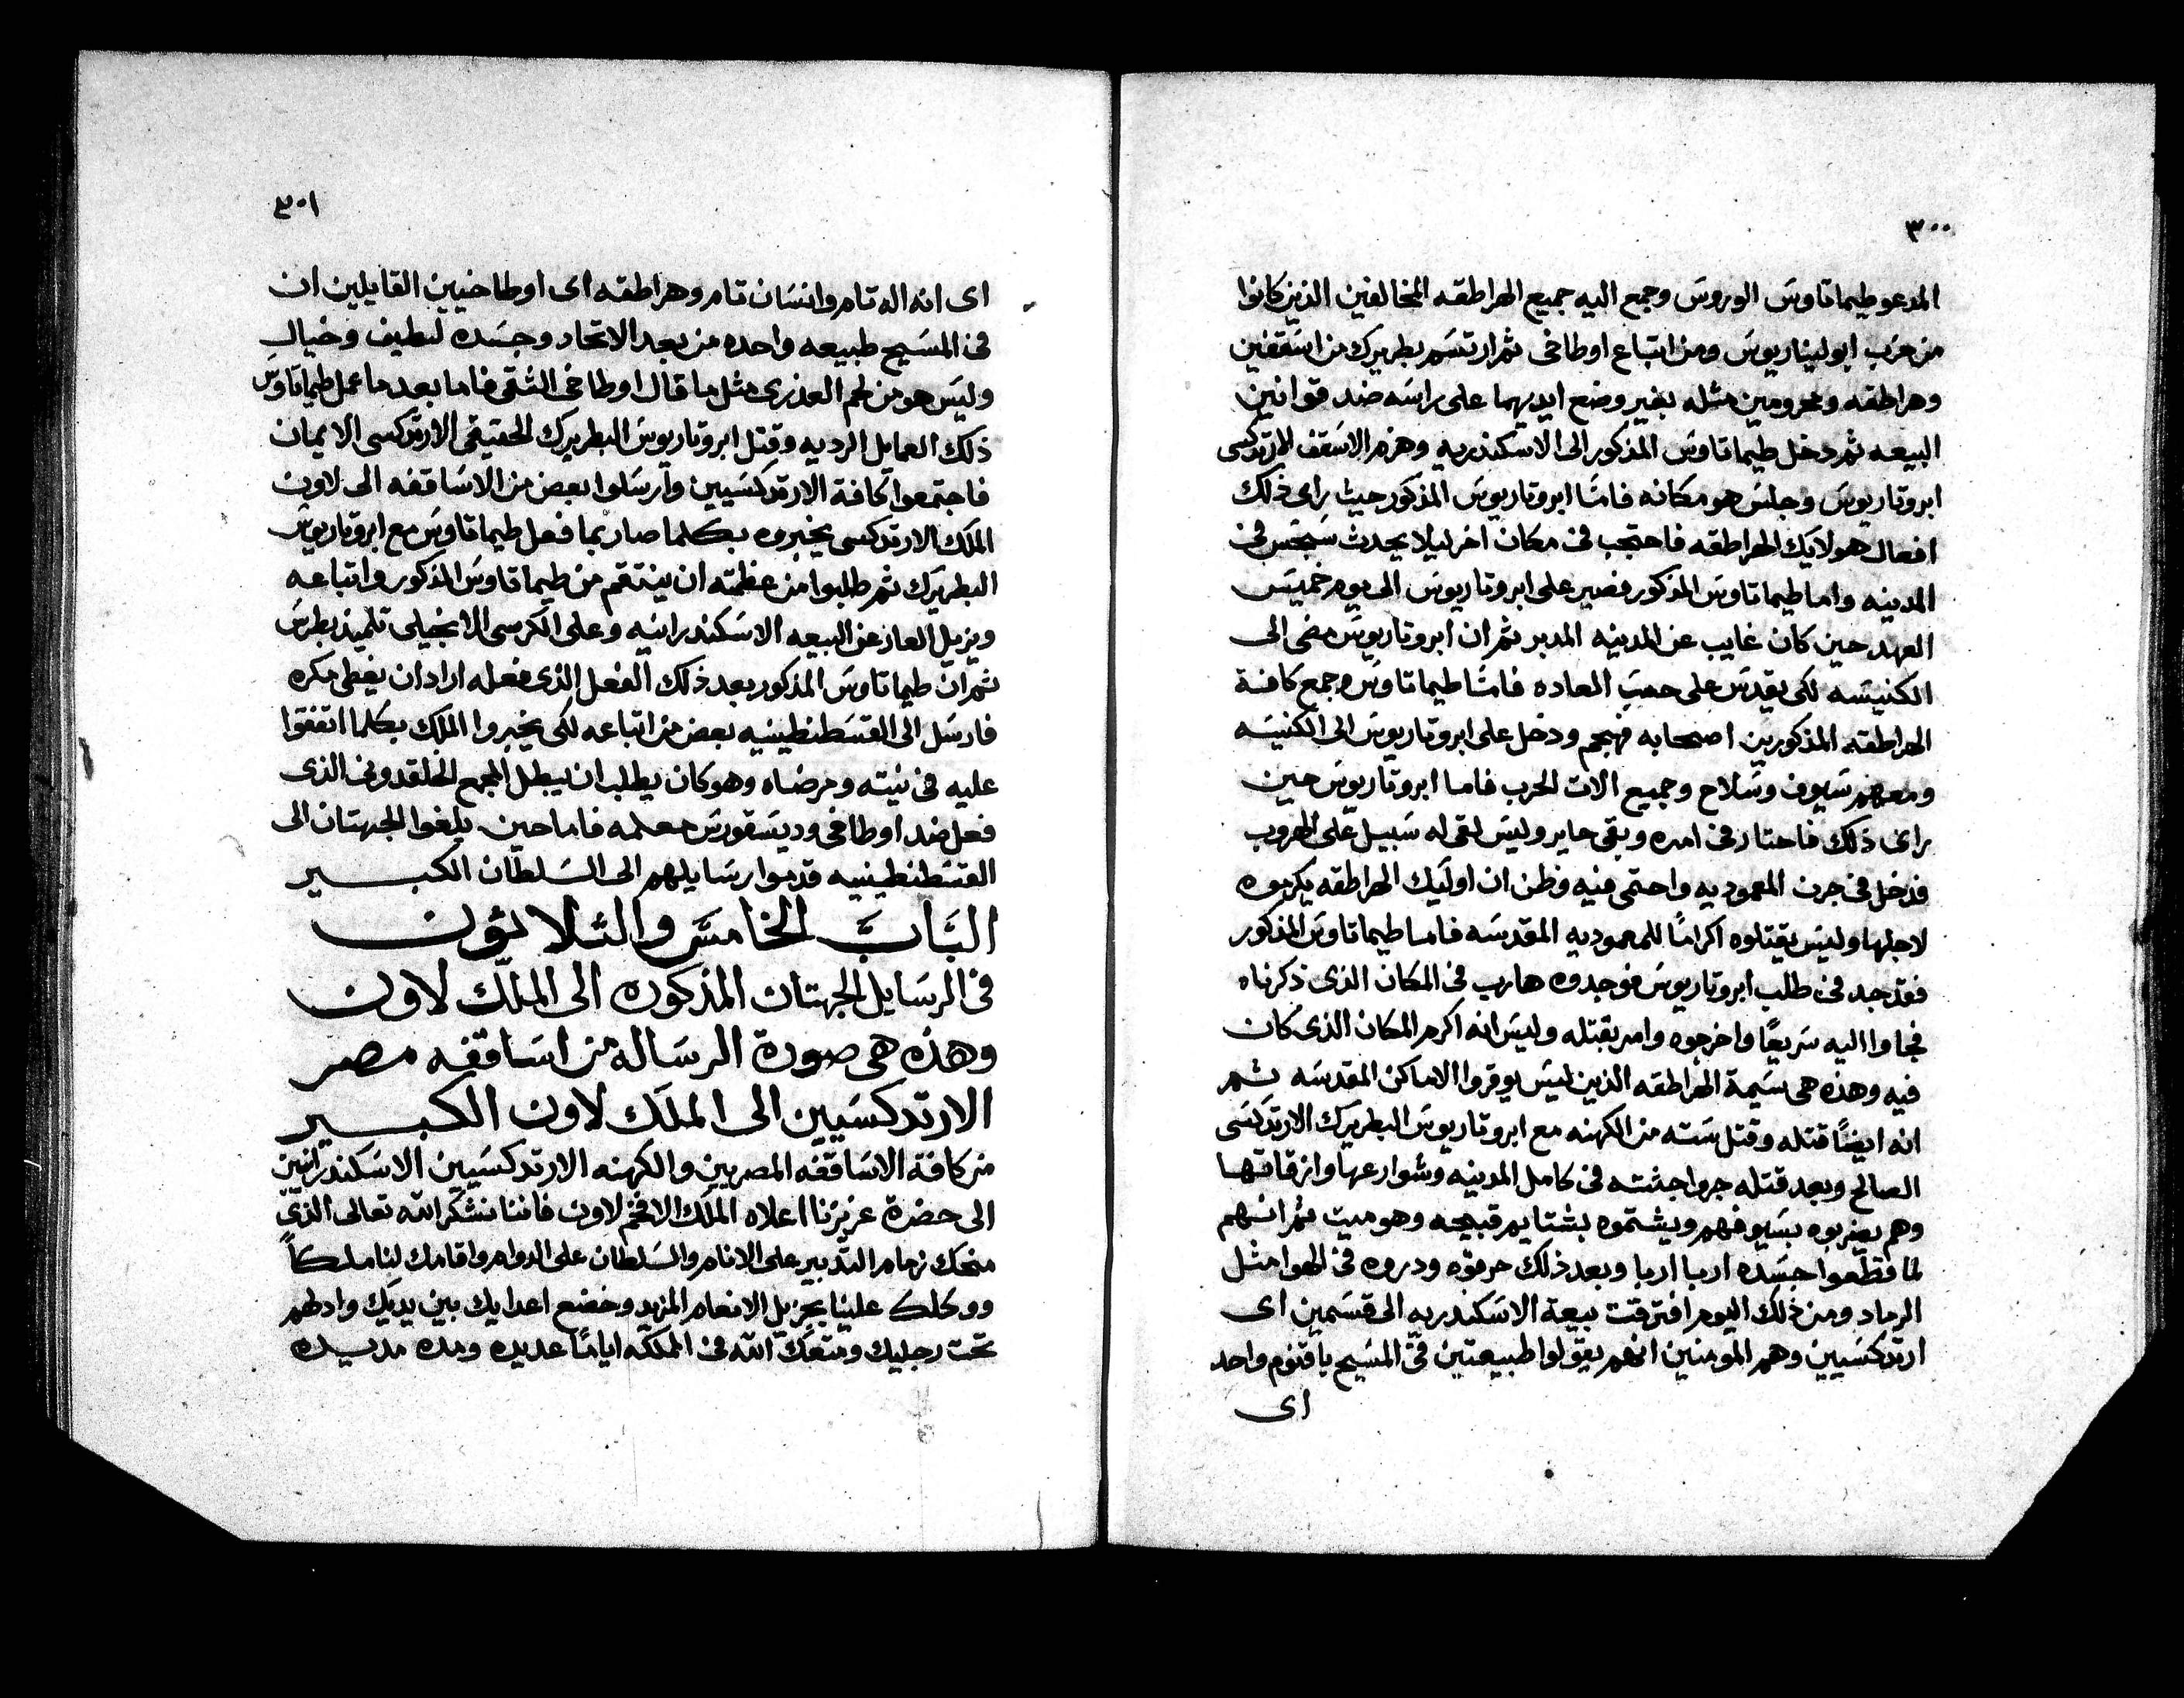 ٣٠٠
المدعو طيماتاوس الوروس وجمع اليه جميع الهراطقه المخالفين الذين كانوا
من حزب ابوليناريوس ومن اتباع اوطاخى ثم ارتسم بطريرك من اسقفين
وهراطقه ومحرومين مثله بغير وضع ايديهما على راسه ضد قوانين
البيعه ثم دخل طيماتاوس المذكور الى الاسكندريه وهزم الاسقف الارتدكسى
ابروتاريوس وجلس هو مكانه فامّا ابروتاريوس المذكور حيث راى ذلك
افعال هولايك الهراطقه فاحتجب فى مكان اخر ليلا يحدث سجس فى
المدينه واما طيماتاوس المذكور فصبر على ابروتاريوس الى يوم خميس
العهد حين كان غايب عن المدينه المدبر ثم ان ابروتاريوس مضى الى
الكنيسه لكى يقدس على حسب العاده فامّا طيماتاوس وجمع كافة
الهراطقه المذكورين اصحابه فهجم ودخل على ابروتاريوس الى الكنيسه
ومعهم سيوف وسلاح وجميع الات الحرب فاما ابروتاريوس حين
راى ذلك فاحتار فى امره وبقى حاير وليس لقى له سبيل على الهروب
فدخل فى جرن المعموديه واحتمى فيه وظن ان اوليك الهراطقه يكرموه
لاجلها وليس يقتلوه اكرامًا للمعموديه المقدسه فاما طيماتاوس المذكور
فقد جد فى طلب ابروتاريوس فوجدوه هارب فى المكان الذى ذكرناه
فجاوا اليه سريعًا واخرجوه وامر بقتله وليس انه اكرم المكان الذى كان
فيه وهذه هى شيمة الهراطقه الذين ليس يوقروا الاماكن المقدسه ثم
انه ايضًا قتله وقتل سته من الكهنه مع ابروتاريوس البطريرك الارتدكسى
الصالح وبعد قتله جروا جثته فى كامل المدينه وشوارعها وازقاتها
وهم يضربوه بسيوفهم ويشتموه بشتايم قبيحه وهو ميت ثم انهم
لما قطعوا جسده اربا اربا وبعد ذلك حرقوه ودروه فى الهوا مثل
الرماد ومن ذلك اليوم افترقت بيعة الاسكندريه الى قسمين اى
ارتدكسيين وهم المومنين انهم يقولوا طبيعتين فى المسيح باقنوم واحد
اى
٣٠١
اى انه اله تام وانسان تام وهراطقه اى اوطاخيين القايلين ان
فى المسيح طبيعه واحده من بعد الاتحاد وجسده لطيف وخيال
وليس هو من لحم العذرى مثل ما قال اوطاخى الشقى فاما بعد ما عمل طيماتاوس
ذلك العمايل الرديه وقتل ابروتاريوس البطريرك الحقيقى الارتدكسى الايمان
فاجتمعوا كافة الارتدكسيين وارسلوا بعض من الاساقفه الى لاون
الملك الارتدكسى يخبروه بكلما صار بما فعل طيماتاوس مع ابروتاريوس
البطريرك ثم طلبوا من عظمته ان ينتقم من طيماتاوس المذكور واتباعه
ويزيل العار عن البيعه الاسكندرانيه وعلى الكرسى الانجيلى تلميذ بطرس
ثم ان طيماتاوس المذكور بعد ذلك الفعل الذى فعله اراد ان يغطى مكره
فارسل الى القسطنطينيه بعض من اتباعه لكى يخبروا الملك بكلما اتفقوا
عليه فى نيته ومرضاه وهو كان يطلب ان يبطل المجمع الخلقدونى الذى
فعل ضد اوطاخى وديسقورس معلمه فاما حين بلغوا الجهتان الى
القسطنطينيه قدموا رسايلهم الى السلطان الكبير
البَابَ الخامس والثلاثون
فى الرسايل الجهتان المذكوره الى الملك لاون
وهذه هى صورة الرساله من اساقفه مصر
الارتدكسيين الى الملك لاون الكبير
من كافة الاساقفه المصريين والكهنه الارتدكسيين الاسكندرانيين
الى حضرة عزيزنا اعلاه الملك الافخم لاون فاننا نشكر الله تعالى الذى
منحك زمام التدبير على الانام والسلطان على الدوام واقامك لنا ملكاً
ووكلك علينا بجزيل الانعام المزيد وخضع اعدايك بين يديك وادلهم
تحت رجليك ومتعك الله فى المملكه ايامًا عديده ومده مديده